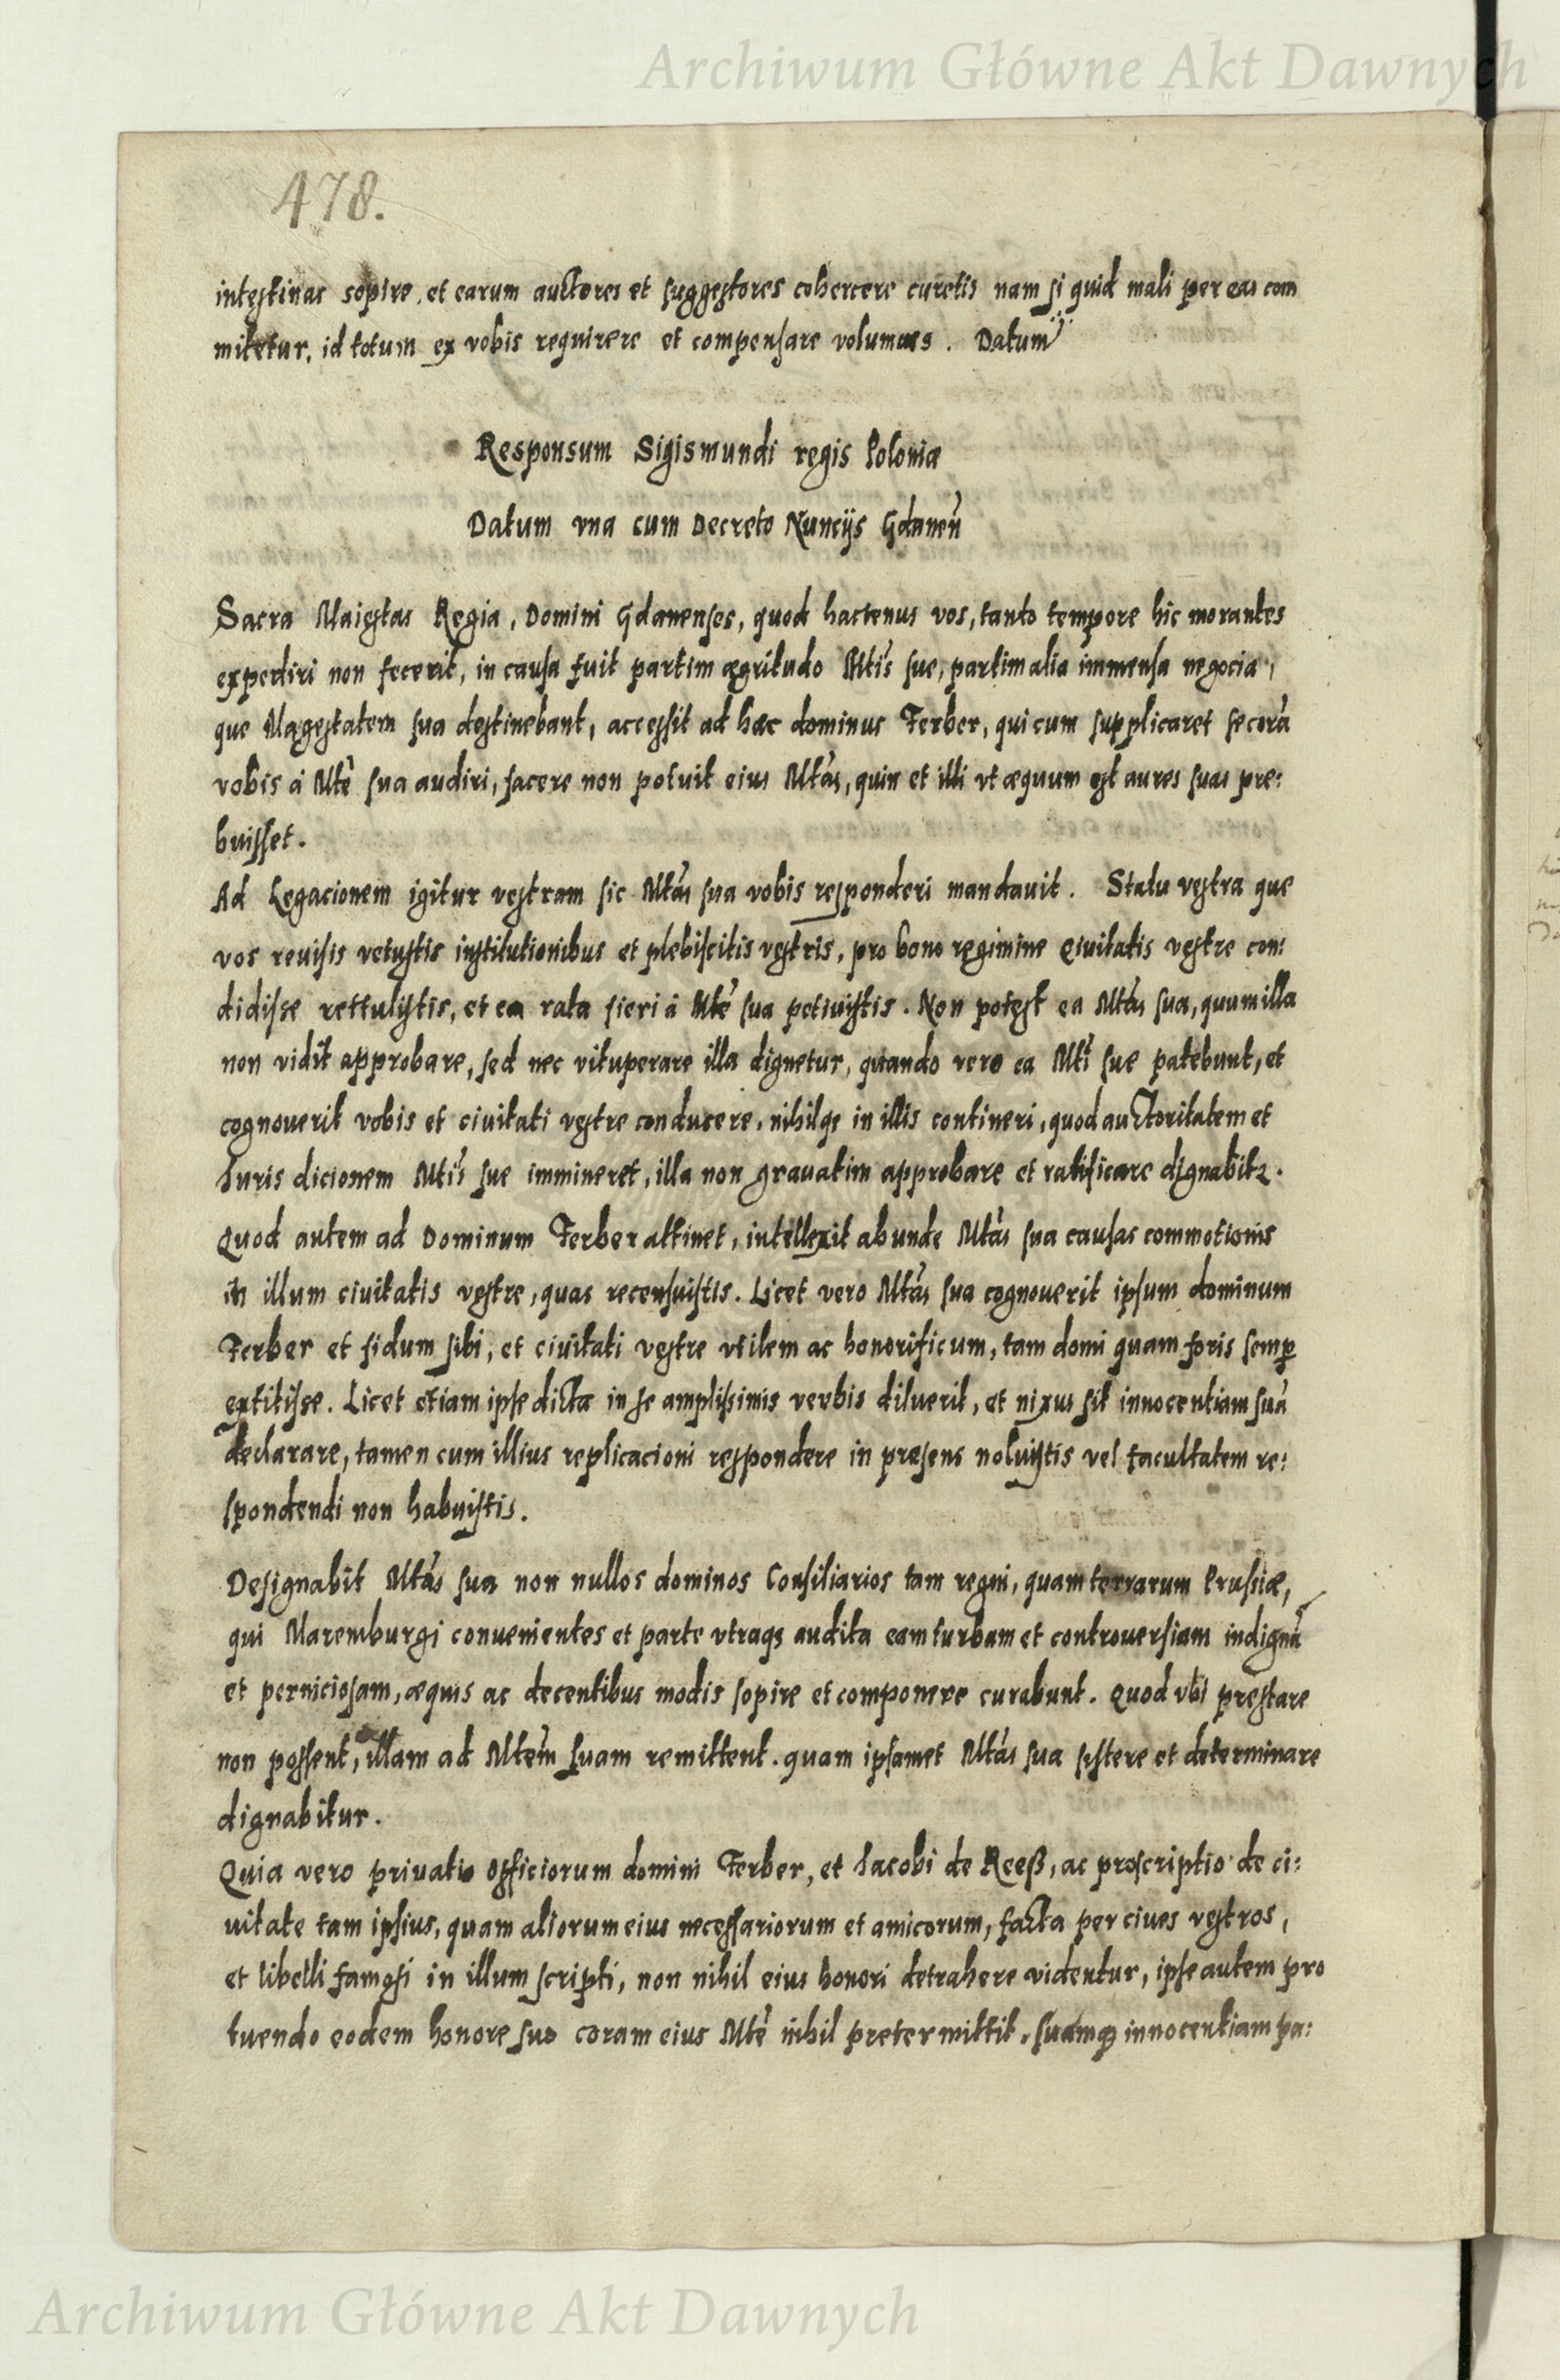 Archiwum Główne Akt Dawnych
478.
intestinas sopire, et earum auctores et suggestores cohercere curetis nam si quid mali per eas com
mitetur, id totum ex vobis requirere et compensare volumus. Datum
Responsum Sigismundi regis Poloniæ
Datum vna cum Decreto Nuncijs Gdaneñ
Sacra Maiestas Regia, Domini Gdanenses, quod hactenus vos, tanto tempore hic morantes
expediri non fecerit, in causa fuit partim ægritudo Mtis sue, partim alia immensa negocia,
que Magestatem sua destinebant, accessit ad hæc dominus Ferber, qui cum supplicaret se corã
vobis á Mte sua audiri, facere non potuit eius Mtas, quin et illi vt æquum est aures suas pre:
buisset.
Ad Legacionem igitur vestram sic Mtas sua vobis responderi mandauit. Statu vestra que
vos reuisis vetustis institutionibus et plebiscitis vestris, pro bono regimine Ciuitatis vestre con:
didisse rettulistis, et ea rata fieri á Mte sua petiuistis. Non potest ea Mtas sua, quum illa
non vidit approbare, sed nec vituperare illa dignetur, quando vero ea Mti sue patebunt, et
cognouerit vobis et ciuitati vestre conducere, nihilqȝ in illis contineri, quod auctoritatem et
Iuris dicionem Mtis sue immineret, illa non grauatim approbare et ratificare dignabitꝛ.
Quod autem ad Dominum Ferber attinet, intellexit abunde Mtas sua causas commotionis
in illum ciuitatis vestre, quas recensuistis. Licet vero Mtas sua cognouerit ipsum dominum
Ferber et fidum sibi, et ciuitati vestre vtilem ac honorificum, tam domi quam foris semꝑ
extitisse. Licet etiam ipse dicta in se amplissimis verbis diluerit, et nixus sit innocentiam suã
declarare, tamen cum illius replicacioni respondere in præsens noluistis vel facultatem re:
spondendi non habuistis.
Designabit Mtas sua non nullos dominos Consiliarios tam regni, quam terrarum Prussiæ,
qui Maremburgi conuenientes et parte vtraqȝ audita eam turbam et controuersiam indignã
et perniciosam, æquis ac decentibus modis sopire et componere curabunt. Quod vbi prestare
non possent, illam ad Mtem suam remittent. quam ipsamet Mtas sua sistere et determinare
dignabitur.
Quia vero priuatio officiorum domini Ferber, et Iacobi de Reeß, ac proscriptio de ci:
uitate tam ipsius, quam aliorum eius necessariorum et amicorum, facta per ciues vestros,
et libelli famosi in illum scripti, non nihil eius honori detrahere videntur, ipse autem pro
tuendo eodem honore suo coram eius Mte nihil pretermittit, suamqȝ innocentiam pa:
Archiwum Główne Akt Dawnych